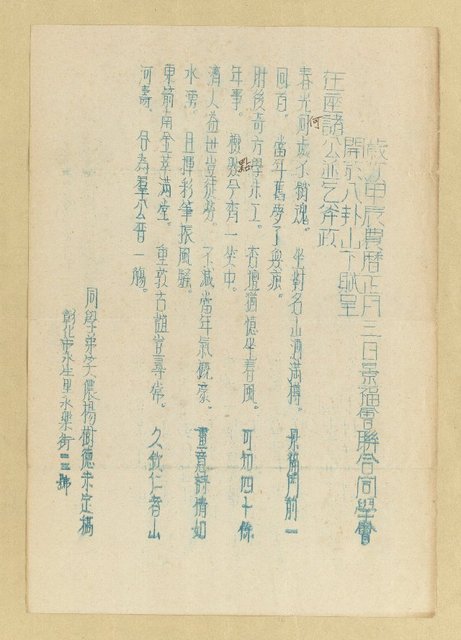 歲次甲辰農曆正月三日景福會聯合同學會
開於八卦山下賦呈
在座諸公並乞斧政
春光何處不魂。 坐對名山酒滿樽。 景福門前一
回首。 當年舊夢了無痕。
肘後奇方學未工。 杏壇猶憶坐春風。 可知四十餘
年事。 檢點今一坐中。
濟人益世豈徒勞。 不減當年氣概豪。 畫意詩情如
水湧。 且揮彩筆振風騷。
東箭南金萃滿堂。 重敦古誼豈尋常。 久欽仁者山
河壽。 合為羣公晉一觴。
同學弟笑儂楊樹德未定稿
彰化市永生里永樂街號